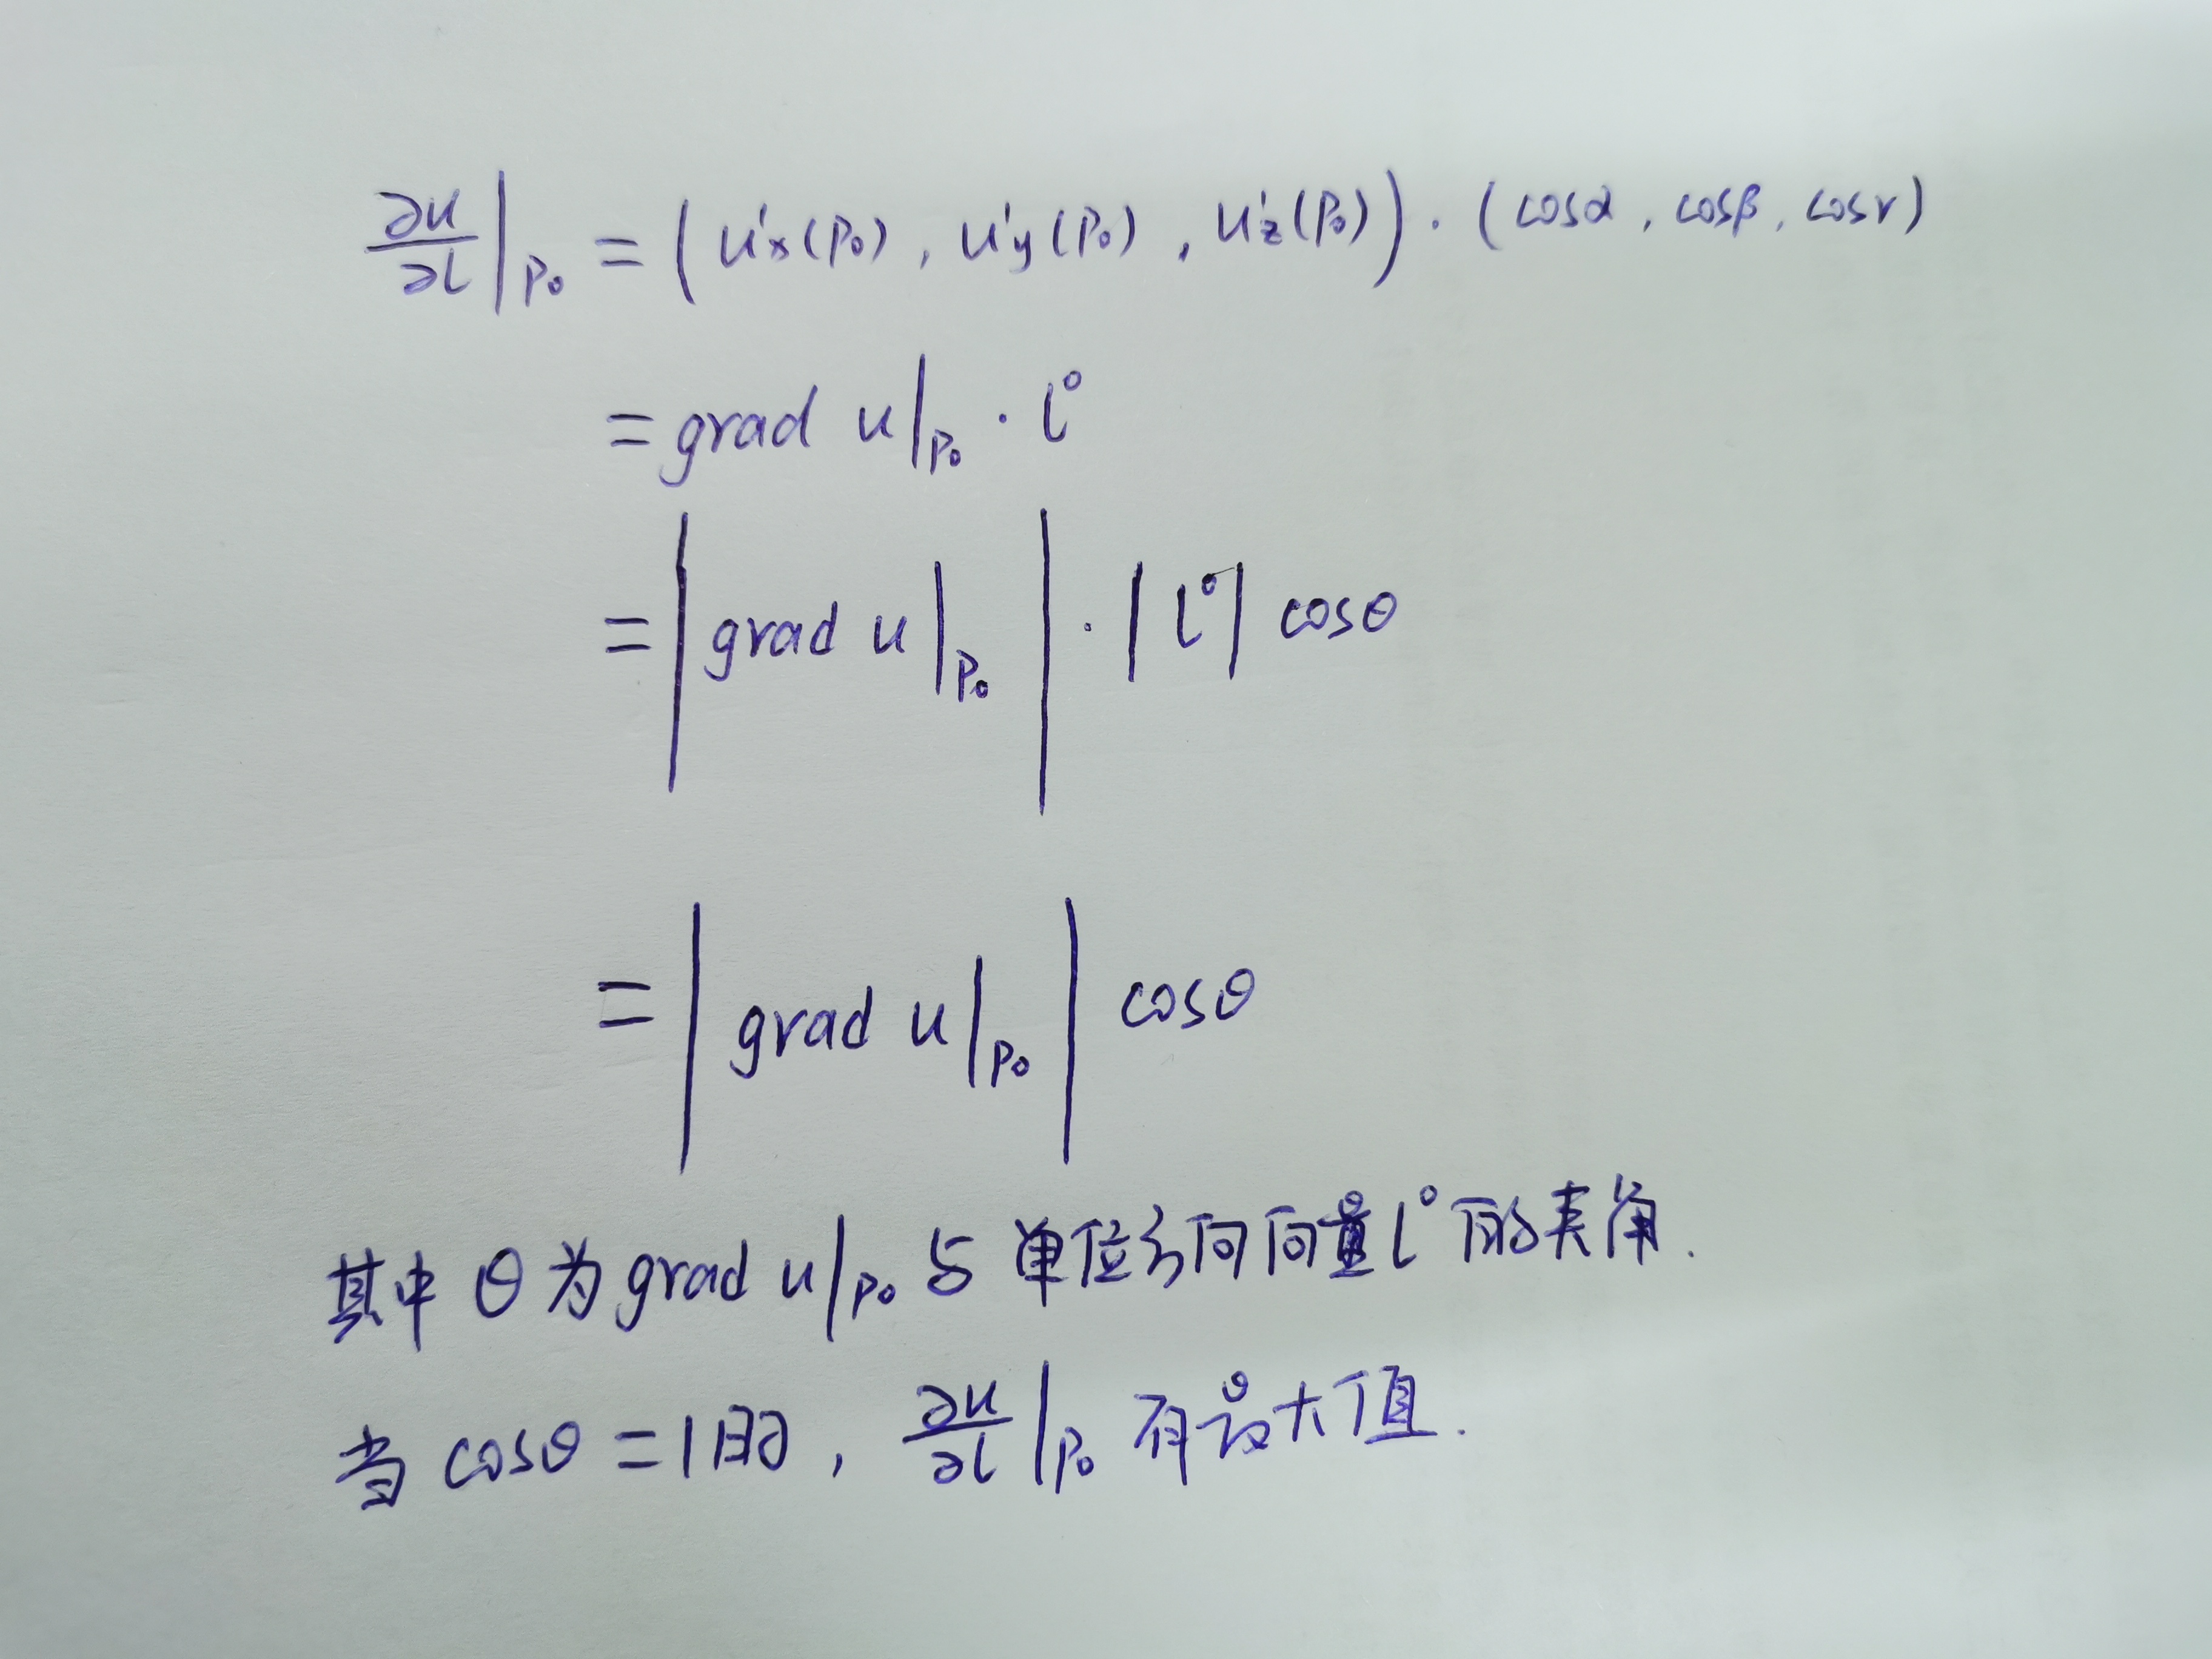 ∂u/∂l|P₀ = (u'x(P₀), u'y(P₀), u'z(P₀)) · (cosα, cosβ, cosγ)
= grad u|P₀ · l°
= |grad u|P₀| · |l°| cosθ
= |grad u|P₀| cosθ
其中 θ 为 grad u|P₀ 与 单位方向向量 l° 的夹角.
当 cosθ = 1时, ∂u/∂l|P₀ 有最大值.